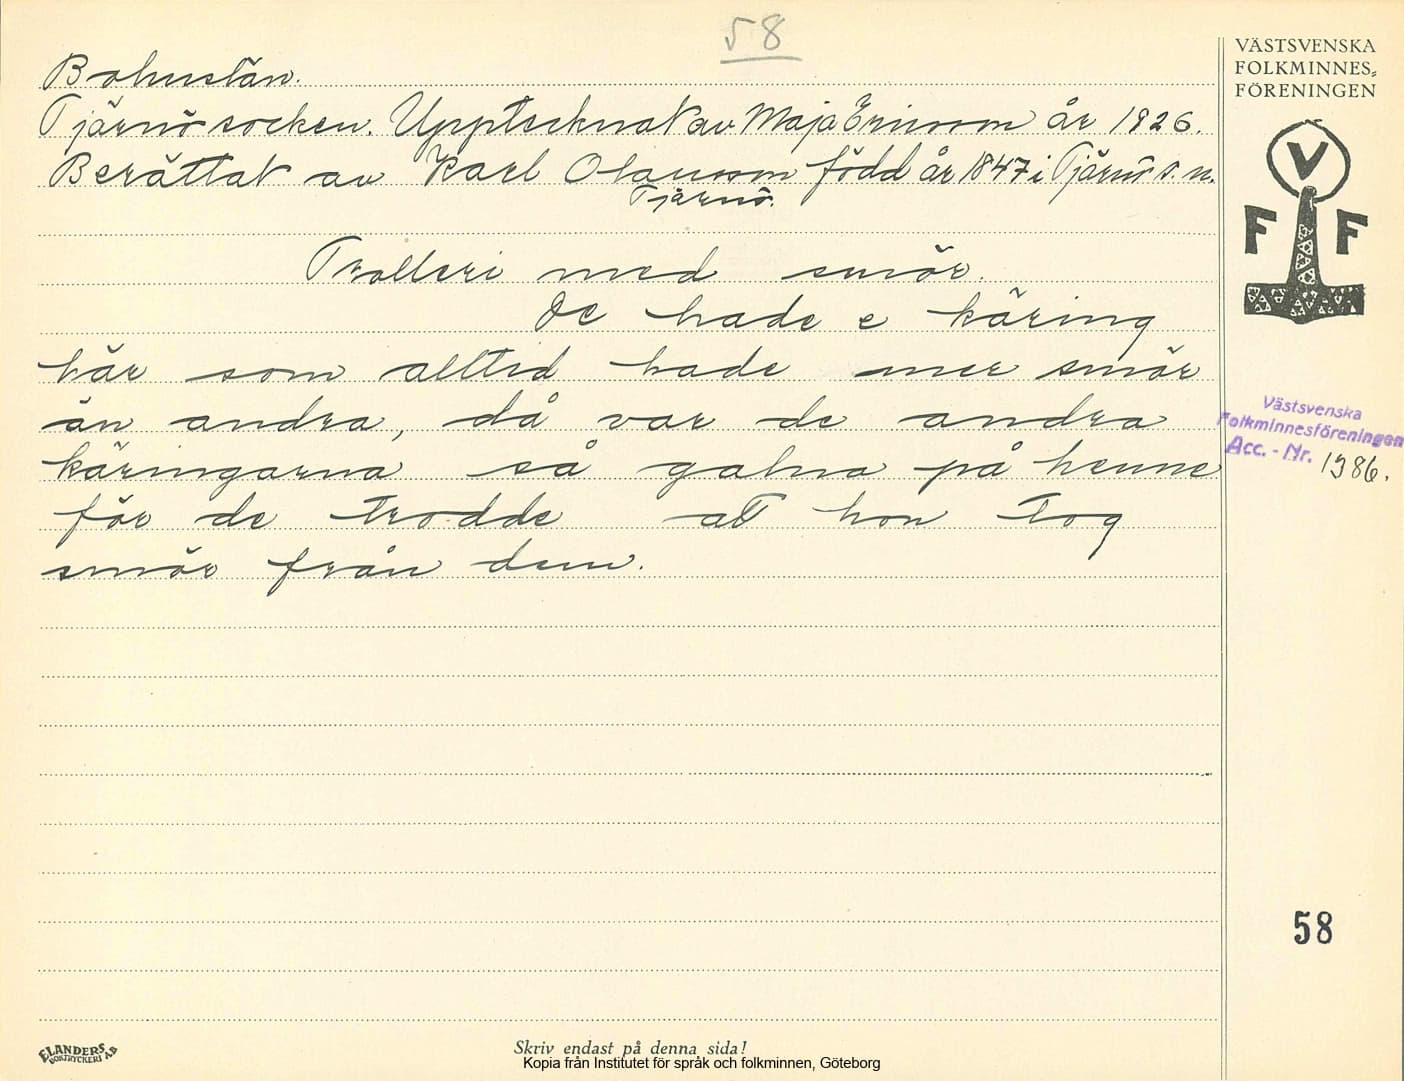 58
Bohuslän.
Tjärnö socken. Upptecknat av Maja Ericsson år 1926.
Berättat av Karl Olausson född år 1847 i Tjärnö s. n.
Tjärnö.
Trolleri med smör.
De hade e käring
här som alltid hade mer smör
än andra, då var de andra
käringarna så galna på henne
för de trodde att hon tog
smör från dem.
VÄSTSVENSKA
FOLKMINNES-
FÖRENINGEN
V
F F
Västsvenska
Folkminnesföreningen
Acc. - Nr. 1986.
58
ELANDERS
BOKTRYCKERI AB
Skriv endast på denna sida!
Kopia från Institutet för språk och folkminnen, Göteborg